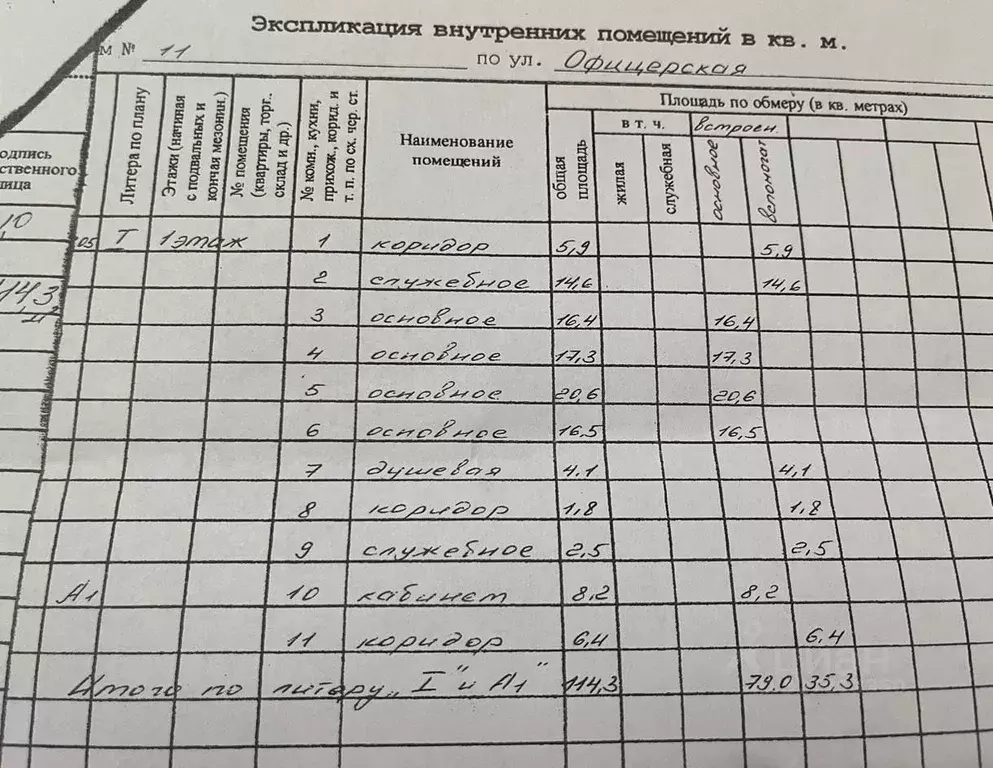 Экспликация внутренних помещений в кв. м.
м № 11 по ул. Офицерская
Литера по плану
Этажи (начиная с подвальных и кончая мезонин.)
№ помещения (квартиры, торг.. склад и др.)
№ комн., кухни, прихож., корид. и т. п. по сх. чер. ст.
Наименование помещений
Площадь по обмеру (в кв. метрах)
общая площадь
в т. ч.
жилая
служебная
встроен.
основное
вспомогат
одпись
ственного
лица
10
05 Т 1 этаж 1 коридор 5,9 5,9
2 служебное 14,6 14,6
3 основное 16,4 16,4
4 основное 17,3 17,3
5 основное 20,6 20,6
6 основное 16,5 16,5
7 душевая 4,1 4,1
8 коридор 1,8 1,8
9 служебное 2,5 2,5
А1 10 кабинет 8,2 8,2
11 коридор 6,4 6,4
Итого по литеру „I" и А1" 114,3 79.0 35,3
циан